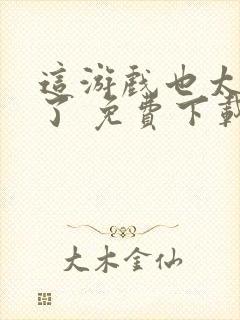 這游戲也太
了 免費下載
大木金仙